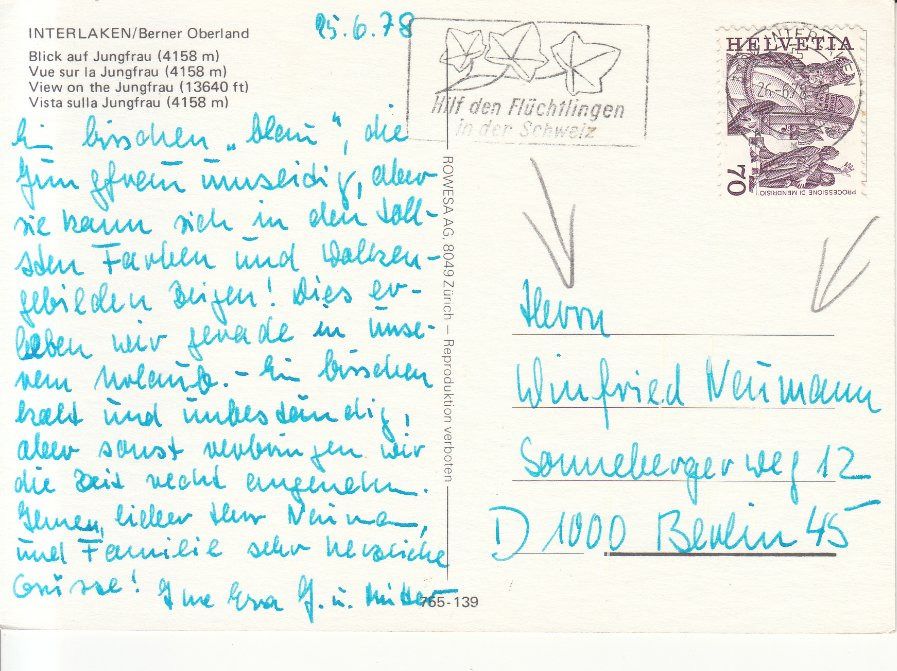 INTERLAKEN/Berner Oberland
Blick auf Jungfrau (4158 m)
Vue sur la Jungfrau (4158 m)
View on the Jungfrau (13640 ft)
Vista sulla Jungfrau (4158 m)
25.6.78
Hilf den Flüchtlingen
in der Schweiz
HELVETIA
INTERLAKEN
26.-6.78
70
PROCESSIONE DI MENDRISIO
Ein bisschen „blau“, die
aber
sie kann sich in den toll-
sten Farben und Wolken-
gebilden zeigen! Dies er-
leben wir gerade in unse-
rem Urlaub. - Ein bisschen
kalt und unbeständig,
aber sonst verbringen wir
die Zeit recht angenehm.
Ihnen, lieber Herr Neumann,
und Familie sehr herzliche
Grüsse! Ihre G. u. Mutter
ROWESA AG, 8049 Zürich – Reproduktion verboten
Herrn
Winfried Neumann
Sonneberger Weg 12
D 1000 Berlin 45
765-139